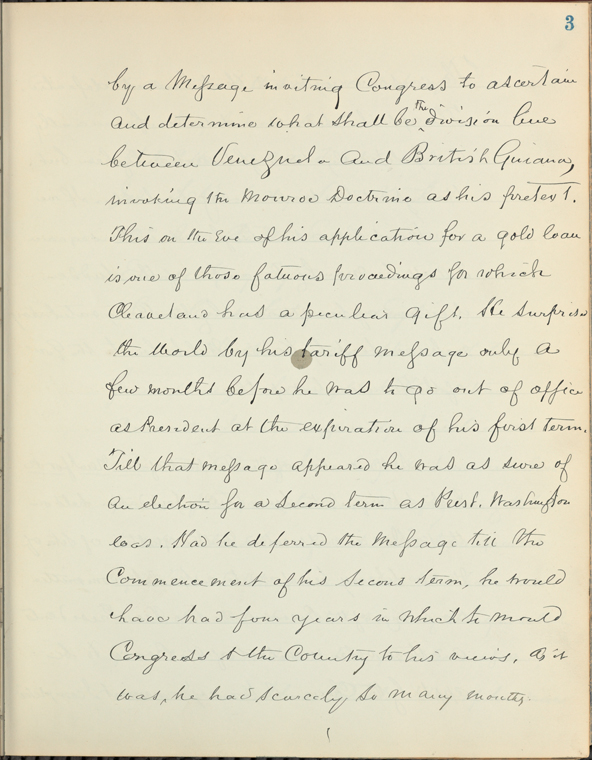 3
by a Message inviting Congress to ascertain
and determine what shall be the division line
between Venezuela and British Guiana,
invoking the Monroe Doctrine as his pretext.
This on the Eve of his application for a gold loan
is one of those fatuous proceedings for which
Cleaveland has a peculiar gift. He surprised
the World by his tariff message only a
few months before he was to go out of office
as President at the expiration of his first term.
Till that message appeared he was as sure of
an election for a Second term as Prest. Washington
was. Had he deferred the Message till the
Commencement of his Second term, he would
have had four years in which to mould
Congress & the Country to his views. As it
was, he had scarcely so many months.